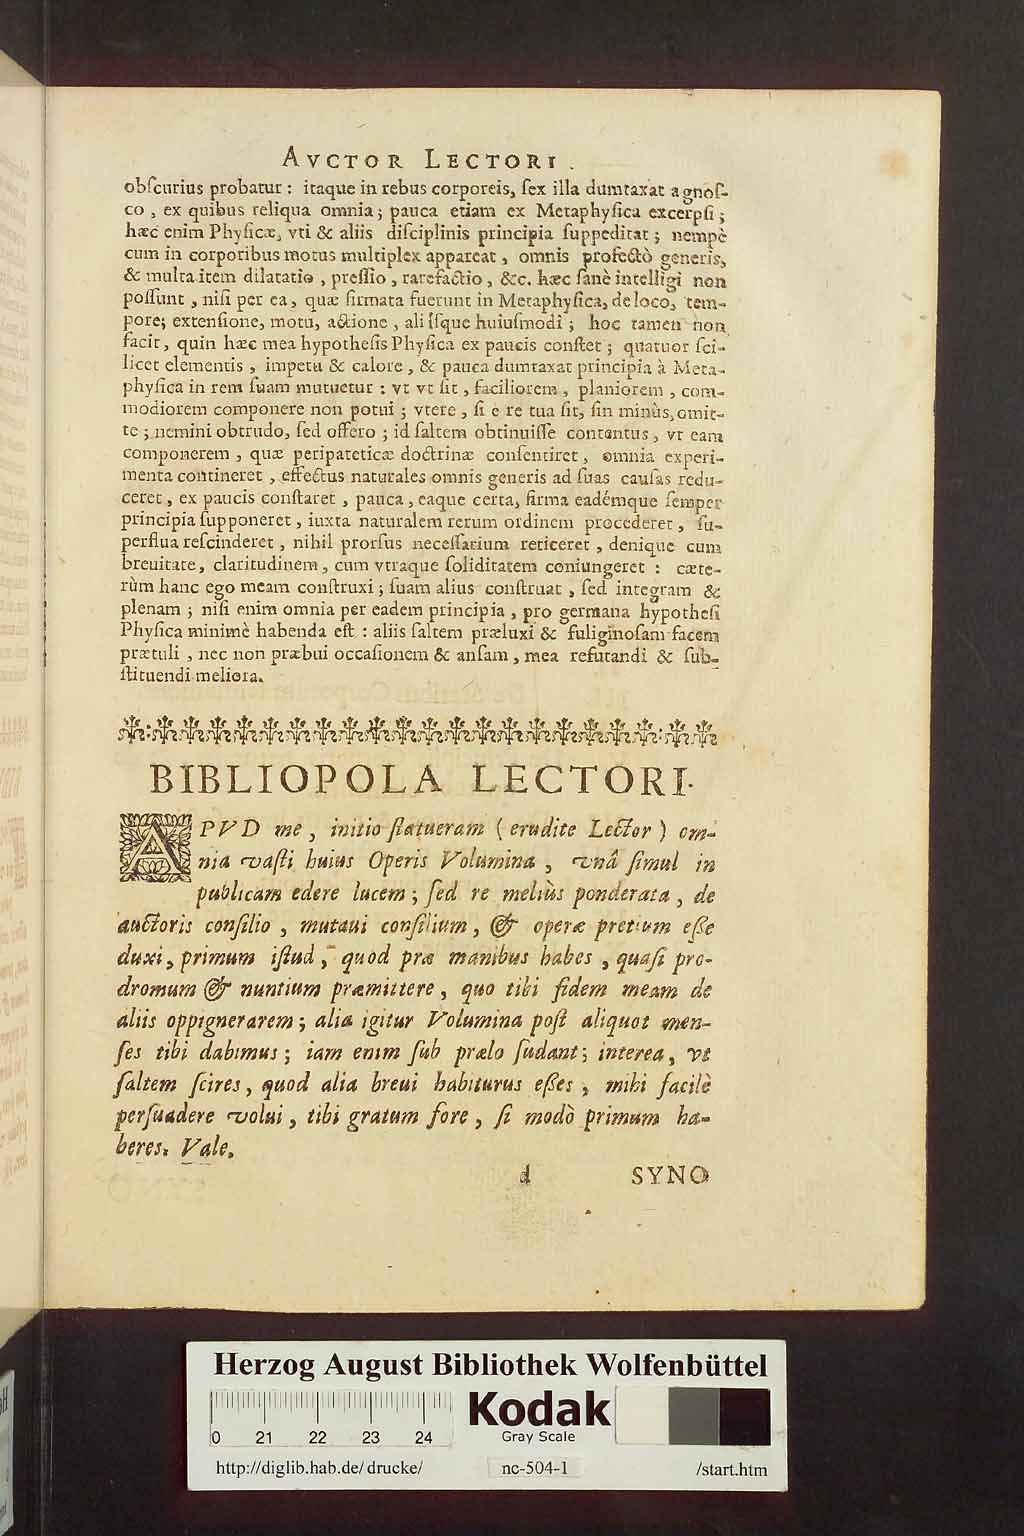 AVCTOR LECTORI.
obſcurius probatur : itaque in rebus corporeis, ſex illa dumtaxat agnoſ-
co , ex quibus reliqua omnia ; pauca etiam ex Metaphyſica excerpſi ;
hæc enim Phyſicæ, vti & aliis diſciplinis principia ſuppeditat ; nempè
cum in corporibus motus multiplex appareat , omnis profectò generis,
& multa item dilatatio , preſſio , rarefactio , &c. hæc ſanè intelligi non
poſſunt , niſi per ea, quæ firmata fuerunt in Metaphyſica, de loco, tem-
pore; extenſione, motu, actione , aliiſque huiuſmodi ; hoc tamen non
facit , quin hæc mea hypotheſis Phyſica ex paucis conſtet ; quatuor ſci-
licet elementis , impetu & calore , & pauca dumtaxat principia à Meta-
phyſica in rem ſuam mutuetur : vt vt ſit , faciliorem , planiorem , com-
modiorem componere non potui ; vtere , ſi e re tua ſit, ſin minùs, omit-
te ; nemini obtrudo, ſed offero ; id ſaltem obtinuiſſe contentus , vt eam
componerem , quæ peripateticæ doctrinæ conſentiret , omnia experi-
menta contineret , effectus naturales omnis generis ad ſuas cauſas redu-
ceret , ex paucis conſtaret , pauca , eaque certa, firma eadémque ſemper
principia ſupponeret , iuxta naturalem rerum ordinem procederet , ſu-
perflua reſcinderet , nihil prorſus neceſſarium reticeret , denique cum
breuitate, claritudinem , cum vtraque ſoliditatem coniungeret : cæte-
rùm hanc ego meam conſtruxi ; ſuam alius conſtruat , ſed integram &
plenam ; niſi enim omnia per eadem principia , pro germana hypotheſi
Phyſica minimè habenda eſt : aliis ſaltem præluxi & fuliginoſam facem
prætuli , nec non præbui occaſionem & anſam , mea refutandi & ſub-
ſtituendi meliora.
BIBLIOPOLA LECTORI.
APVD me , initio ſtatueram ( erudite Lector ) om-
nia vaſti huius Operis Volumina , vnâ ſimul in
publicam edere lucem ; ſed re meliùs ponderata , de
auctoris conſilio , mutaui conſilium , & operæ pretium eſſe
duxi , primum iſtud , quod præ manibus habes , quaſi pro-
dromum & nuntium præmittere , quo tibi fidem meam de
aliis oppignerarem ; alia igitur Volumina poſt aliquot men-
ſes tibi dabimus ; iam enim ſub prælo ſudant ; interea , vt
ſaltem ſcires , quod alia breui habiturus eſſes , mihi facilè
perſuadere volui , tibi gratum fore , ſi modò primum ha-
beres. Vale.
d SYNO
Herzog August Bibliothek Wolfenbüttel
0 21 22 23 24
Kodak
Gray Scale
http://diglib.hab.de/drucke/ nc-504-1 /start.htm